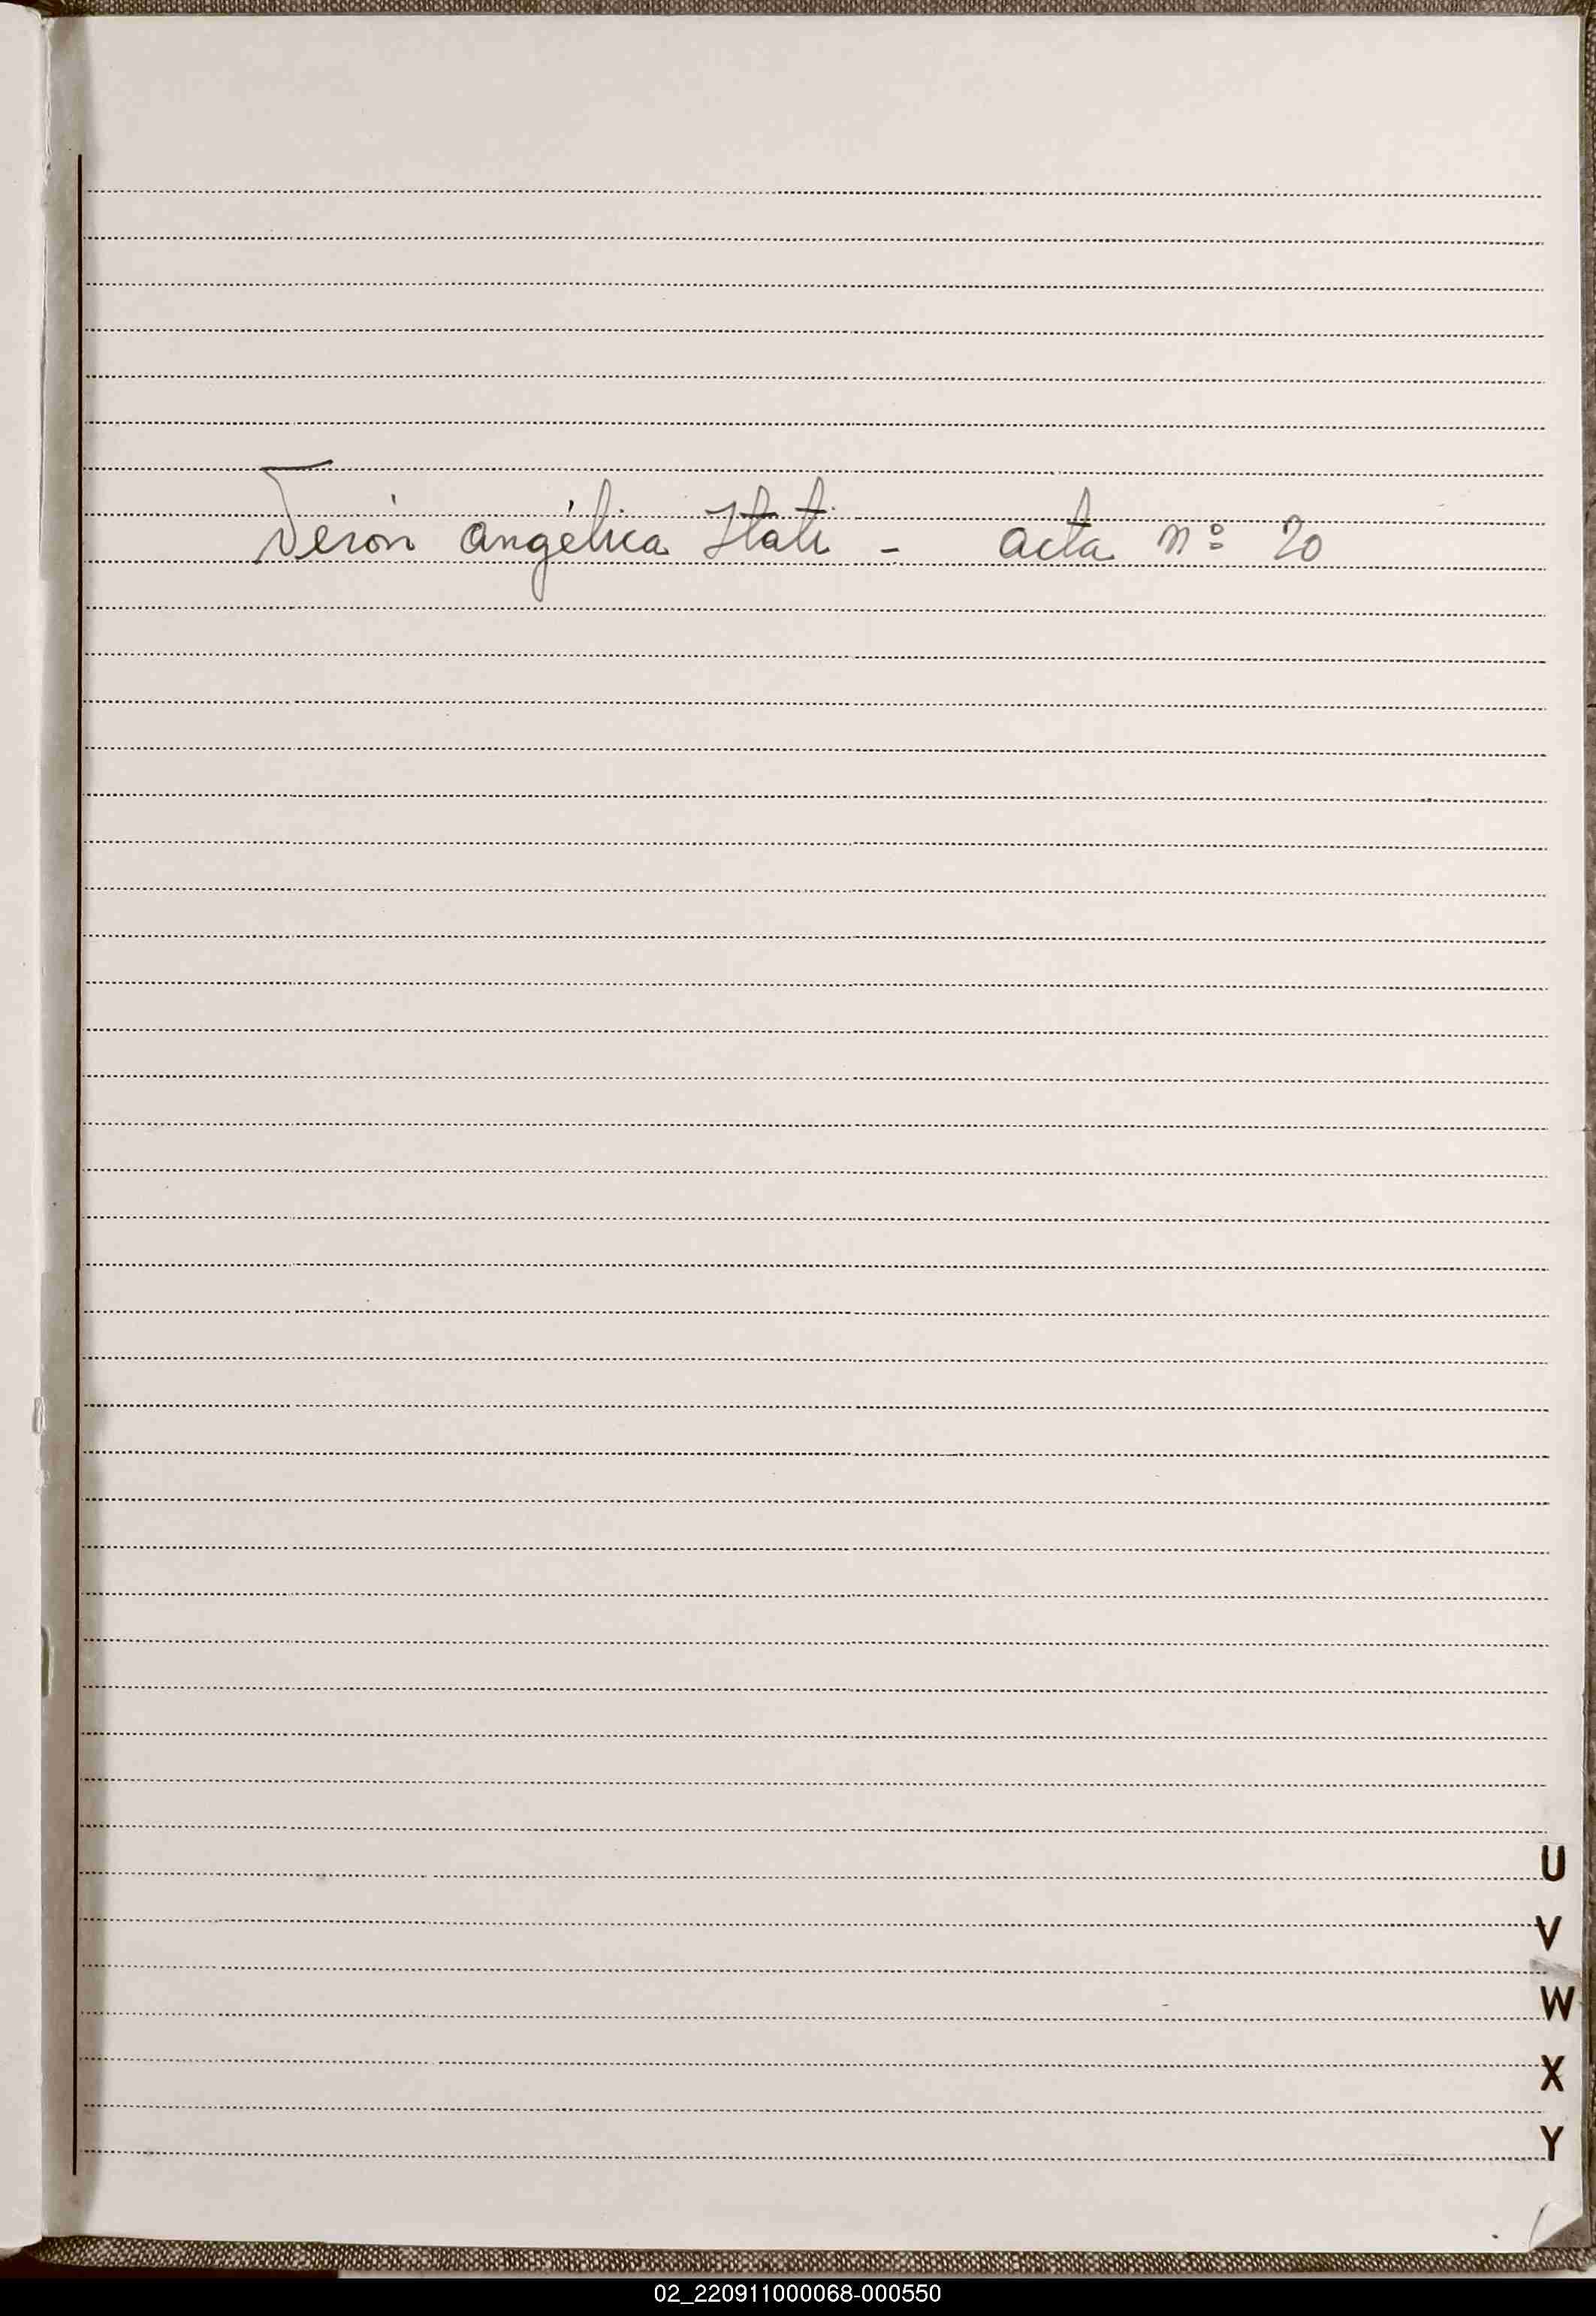 Verón Angélica Itati - acta nº 20
U
V
W
X
Y
02_220911000068-000550